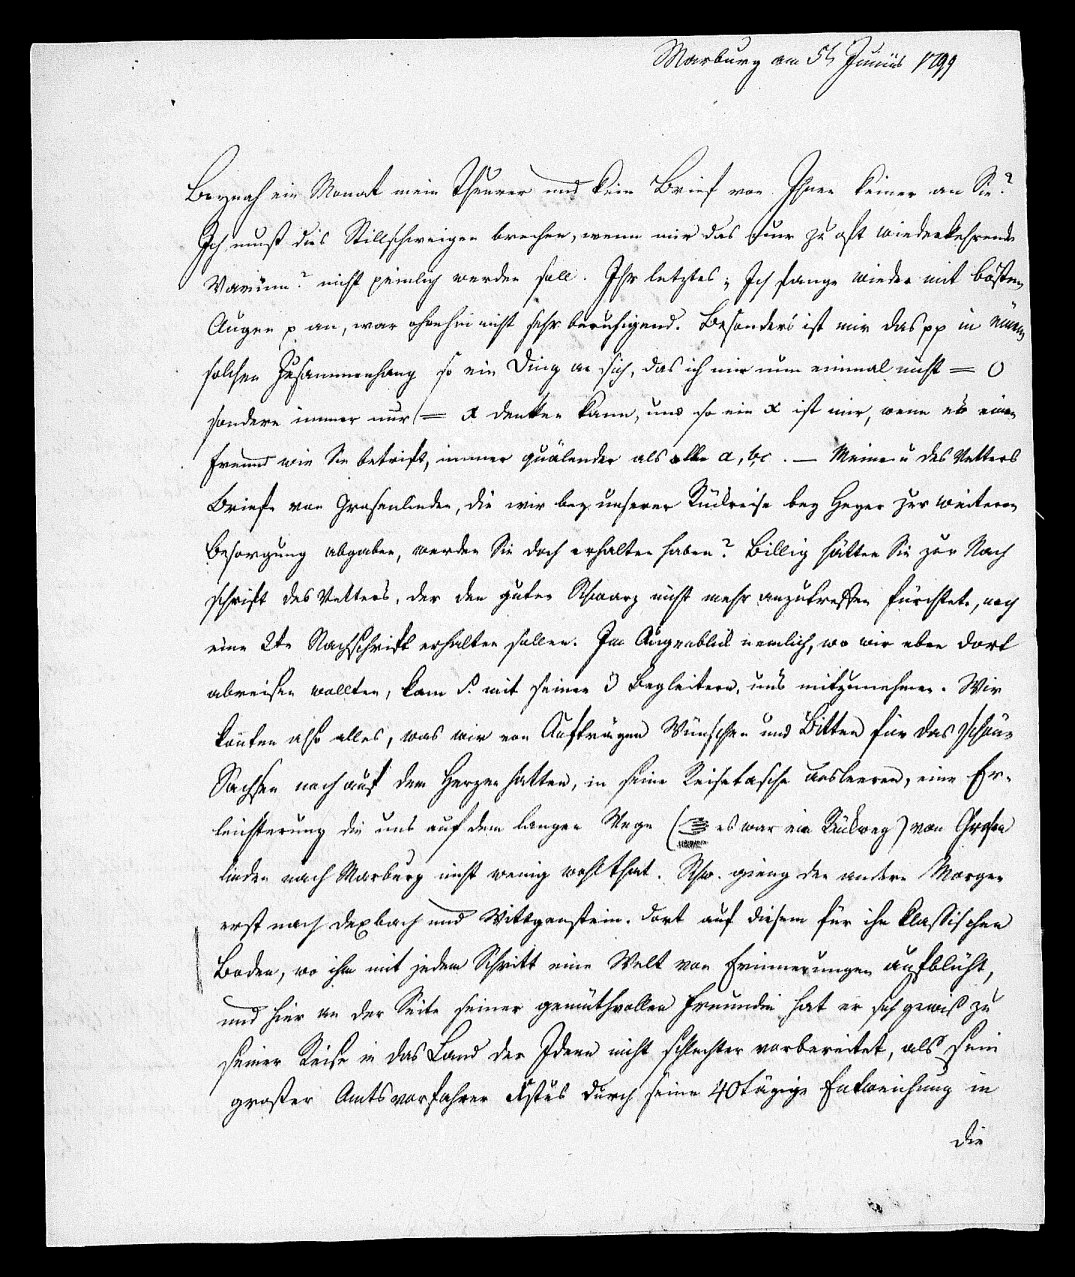 Marburg am 5t Junius 1799
Beynah ein Monat mein Theurer und kein Brief von Ihnen keiner an Sie?
Ich muß dies Stillschweigen brechen, wenn mir das nur zu oft wiederkehrende
Warum? nicht peinlich werden soll. Ihr letztes: Ich fange wieder mit bösen
Augen p an, war ohnehin nicht sehr beruhigend. Besonders ist mir das pp in einem
solchen Zusammenhang so ein Ding an sich, das ich mir nun einmal nicht = 0
sondern immer nur = x denken kann, und so ein x ist mir, wenn es einen
Freund wie Sie betrift, immer quälender als alle a, b, c. — Meine u des Vetters
Briefe von Grosenlinden, die wir bey unserer Rückreise bey Heyer zur weiteren
Besorgung abgaben, werden Sie doch erhalten haben? Billig hätten Sie zur Nach
schrift des Vetters, der den guten Schwarz nicht mehr anzutreffen fürchtete, noch
eine 2te Nachschrift erhalten sollen. Im Augenblick nemlich, wo wir eben dort
abreisen wollten, kam S. mit seinen 3 Begleitern, uns mitzunehmen. Wir
konten also alles, was wir von Aufträgen Wünschen und Bitten für das schöne
Sachsen noch auf dem Herzen hatten, in seine Reisetasche ausleeren, eine Er-
leichterung die uns auf dem langen Wege (es war ein Rückweg) von Grosen
linden nach Marburg nicht wenig wohl that. Schw. gieng den andern Morgen
erst nach Dexbach und Wittgenstein. Dort auf diesem für ihn klassischen
Boden, wo ihm mit jedem Schritt eine Welt von Erinnerungen aufblüht,
und hier an der Seite seiner gemüthvollen Freundin hat er sich gewiß zu
seiner Reise in das Land der Ideen nicht schlechter vorbereitet, als sein
großer Amtsvorfahrer Xstus durch seine 40tägige Entweichung in
die